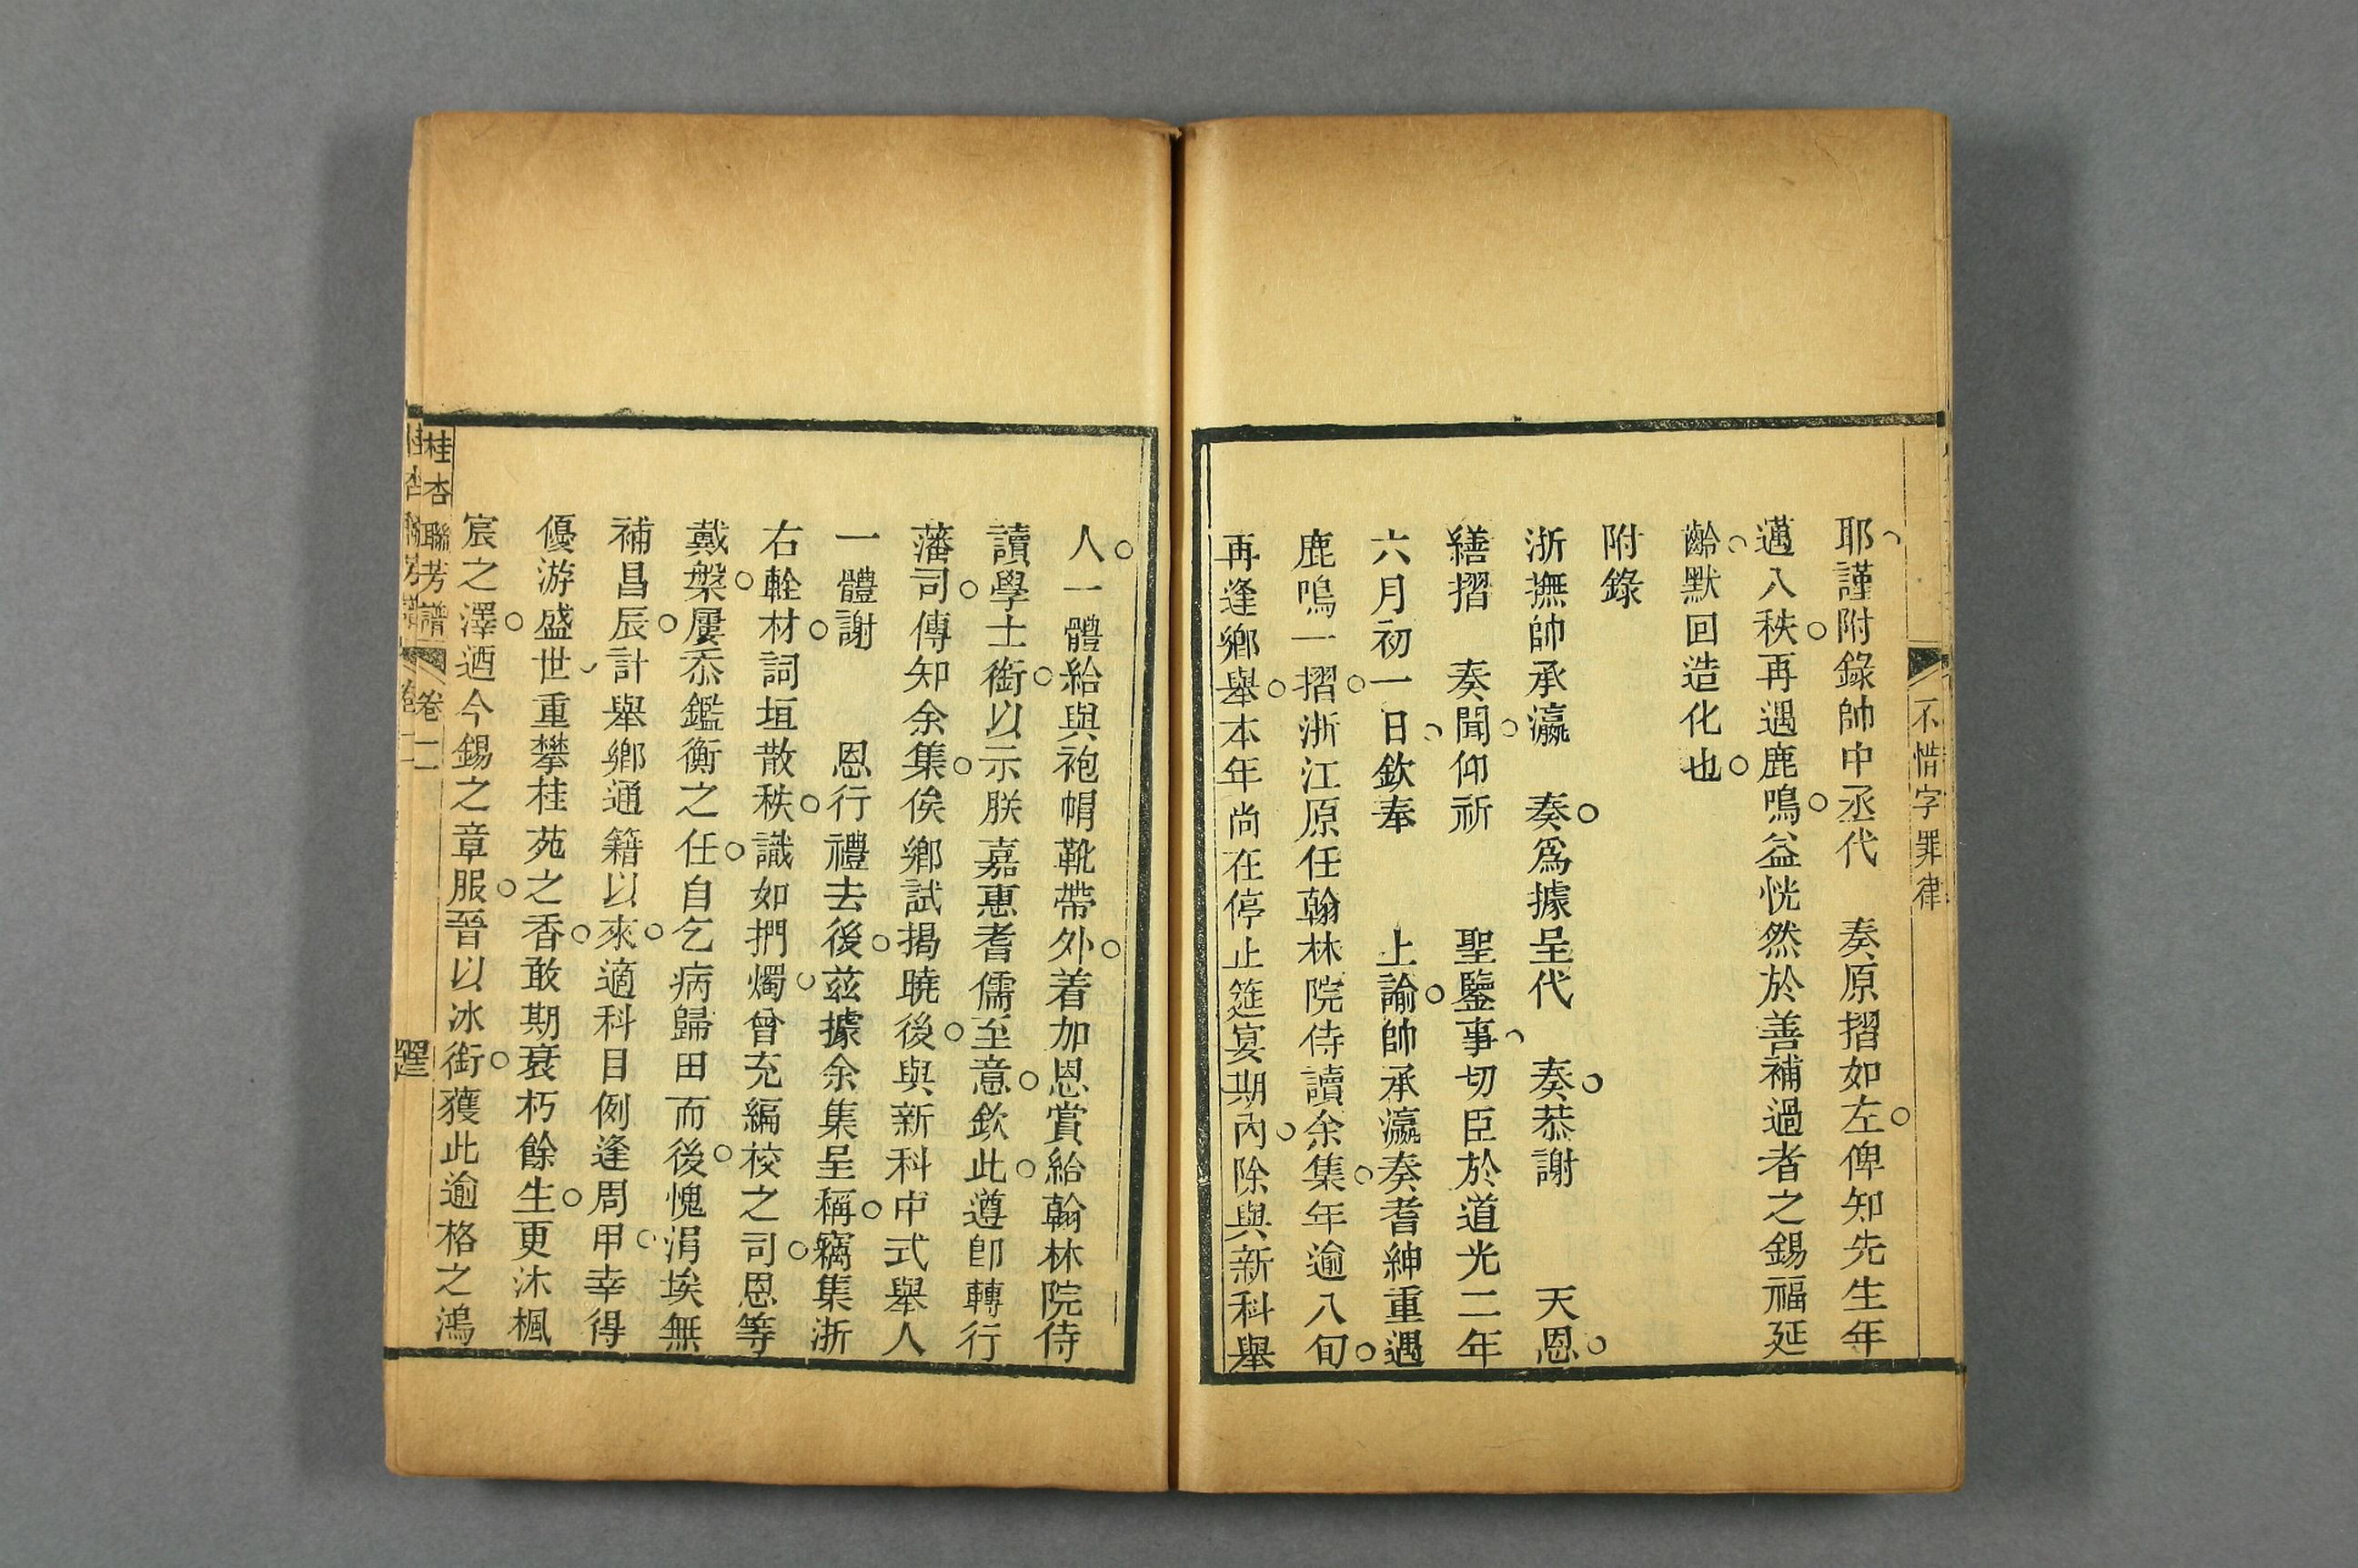 不惜字罪律
耶謹附錄帥中丞代　奏原摺如左俾知先生年
邁八秩再遇鹿鳴益恍然於善補過者之錫福延
齡默回造化也
附錄
浙撫帥承瀛　奏爲據呈代　奏恭謝　天恩
繕摺　奏聞仰祈　聖鑒事切臣於道光二年
六月初一日欽奉　上諭帥承瀛奏耆紳重遇
鹿鳴一摺浙江原任翰林院侍讀余集年逾八旬
再逢鄉舉本年尚在停止筵宴期內除與新科舉
人一體給與袍帽靴帶外着加恩賞給翰林院侍
讀學士銜以示朕嘉惠耆儒至意欽此遵卽轉行
藩司傳知余集俟鄉試揭曉後與新科中式舉人
一體謝　恩行禮去後茲據余集呈稱竊集浙
右輇材詞垣散秩識如捫燭曾充編校之司恩等
戴槃屢忝鑑衡之任自乞病歸田而後愧涓埃無
補昌辰計舉鄉通籍以來適科目例逢周甲幸得
優游盛世重攀桂苑之香敢期衰朽餘生更沐楓
宸之澤迺今錫之章服晉以冰銜獲此逾格之鴻
桂杏聯芳譜
卷二